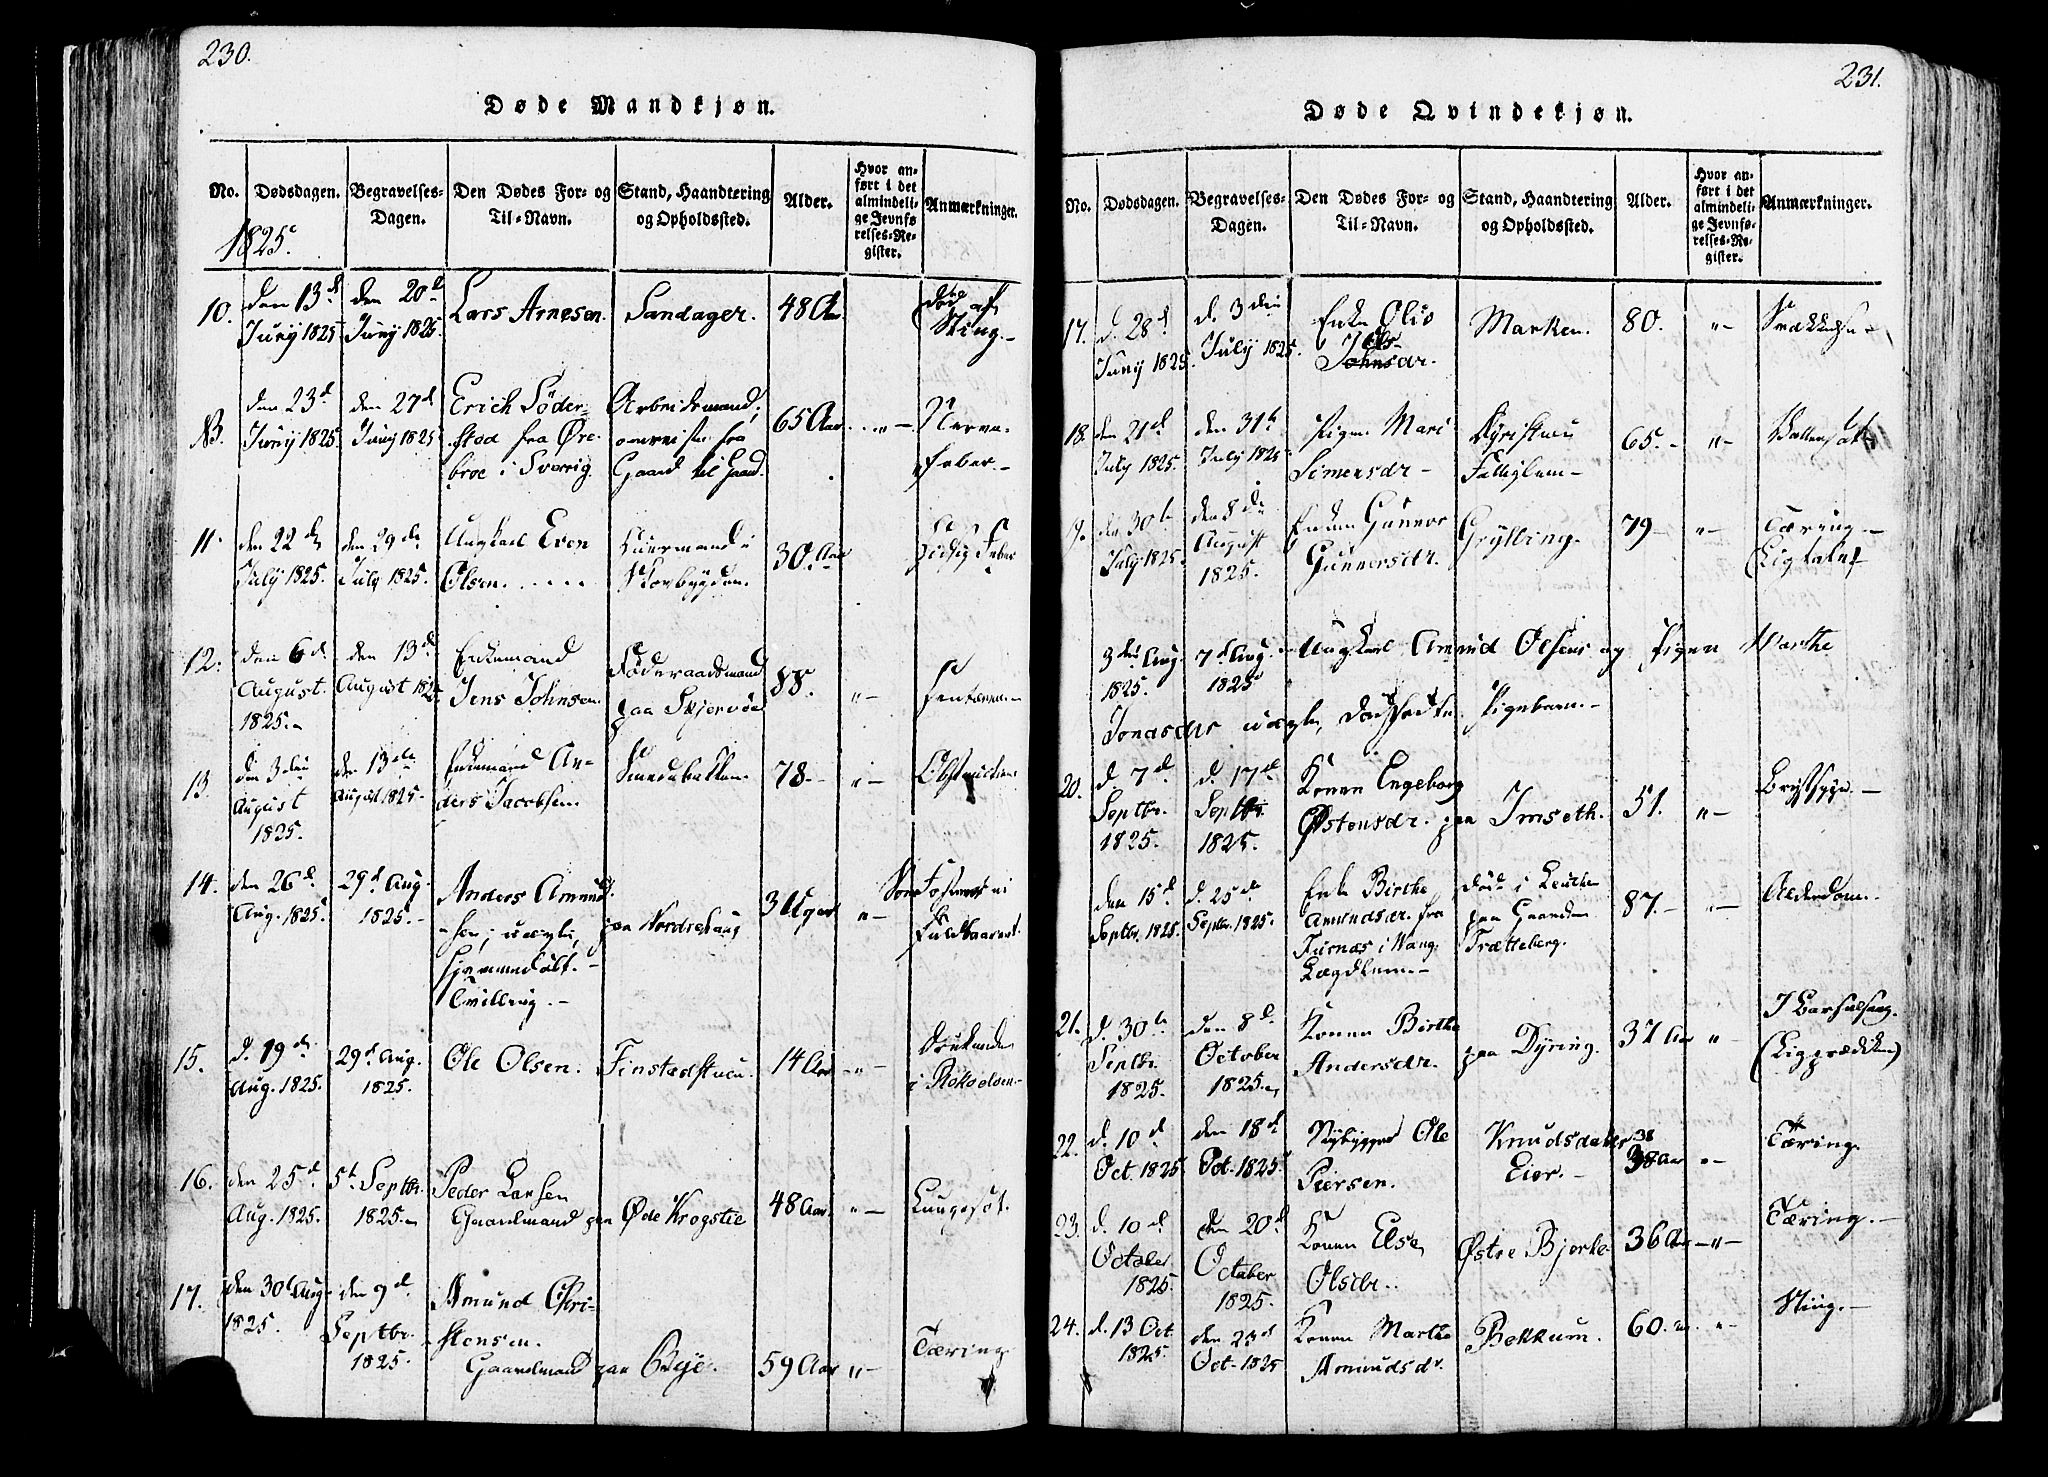 230.
Døde Mandkjøn.
No.
Dødsdagen.
Begravelses-
Dagen.
Den Dødes For- og
Til-Navn.
Stand, Haandtering
og Opholdssted.
Alder.
Hvor an-
ført i det
almindeli-
ge Jevnfø
relses-Re-
gister.
Anmærkninger.
1825.
10. den 13d Juny 1825 den 20d Juny 1825 Lars Arnesen. Sandager. 48 Aar døde af
Sting.-
den 23d Juny 1825 den 27d Juny 1825 Erich Söder-
stad fra Øre-
broe i Sverrig.
Arbeidsmand,
omreiste fra
Gaard til Gaard.
65 Aar "-
Nerve-
feber.-
11. den 22d July 1825. den 29de July 1825. Ungkarl Even
Olsen.
Huusmand i
Skovbygden.
30. Aar
Hidsig Feber
12. den 6d August 1825.- den 13d August 1825. Enkemand
Jens Johnsen.
Föderaadsmand
paa Skjervöe
88. "-
13. den 3die August 1825. den 13de August 1825. Enkemand An-
ders Jacobsen.
78.- "-
Obstruction.
14. den 26d Aug. 1825. 29d Aug. 1825.- Anders Amund-
sen, uægte,
hjemmedöbt.-
Tvilling.-
paa Nordrehaug
3 Uger "-
15. d. 19de Aug. 1825. 29d Aug. 1825. Ole Olsen. Finstadstuen. 14 Aar -"-
Druknede
i Rokoelven.-
16. den 25d Aug. 1825. 5t Septbr. 1825. Peder Larsen
Gaardmand paa Øde Krogstie 48 Aar. "- Lungesot.
17. den 30t Aug. 1825. den 9d Septbr. 1825. Amund Chri-
stensen.
Gaardmand paa 59 Aar "- Tæring
231.
Døde Qvindekjøn.
No.
Dødsdagen.
Begravelses-
Dagen.
Den Dødes For- og
Til-Navn.
Stand, Haandtering
og Opholdssted.
Alder.
Hvor an-
ført i det
almindeli-
ge Jevnfø-
relses-Re-
gister.
Anmærkninger.
17. d. 28d Juny 1825. d. 3die July 1825. Enke
Johnsdr.
Marken. 80. "-
18. den 21d July 1825. den 31t July 1825 Pigen Mari
Simensdr-
65.- "-
19. den 30t July 1825. den 8de August 1825. Enken Gunnor
Gunnersdr.
Grytting. 79- "- Tæring.-
(Ligtale)
3die Aug. 1825. 7d Aug. 1825 Ungkarl Amund Olsens og Pigen Marthe
Jonasdrs uægte, dödfödte Pigebarn.-
20. d. 7d Septbr. 1825. d. 17d Septbr. 1825. Konen Engeborg
Østensdr. paa Imseth. 51. "- Brystsyge.-
den 15d Septbr. 1825. d. 25de Septbr. 1825. Enke Birthe
Amundsdr. fra
Furnæs i Vang.
Lægdlem.-
död i Leuthen
paa Gaarden
Trætteberg.
87.- "- Alderdom.-
21. d. 30t Septbr. 1825. den 8d October 1825. Konen Birthe
Andersdr.
paa Dÿring. 37 Aar "- I Barselseng.
(Ligprædiken)
22. d. 10d Oct. 1825. den 18d Oct. 1825. Nybygger Ole
Piersen.
Knudsdatter
Eier.-
38
38 Aar "- Tæring.
23. d. 10d October 1825. den 20d October 1825. Konen Else
Olsdr.
Østre Bjerke. 36 Aar -"- Tæring.-
24. d. 13 Oct. 1825. den 23d Oct. 1825 Konen Marthe
Amundsdr.
Bekkum. 60. "- Sting.-